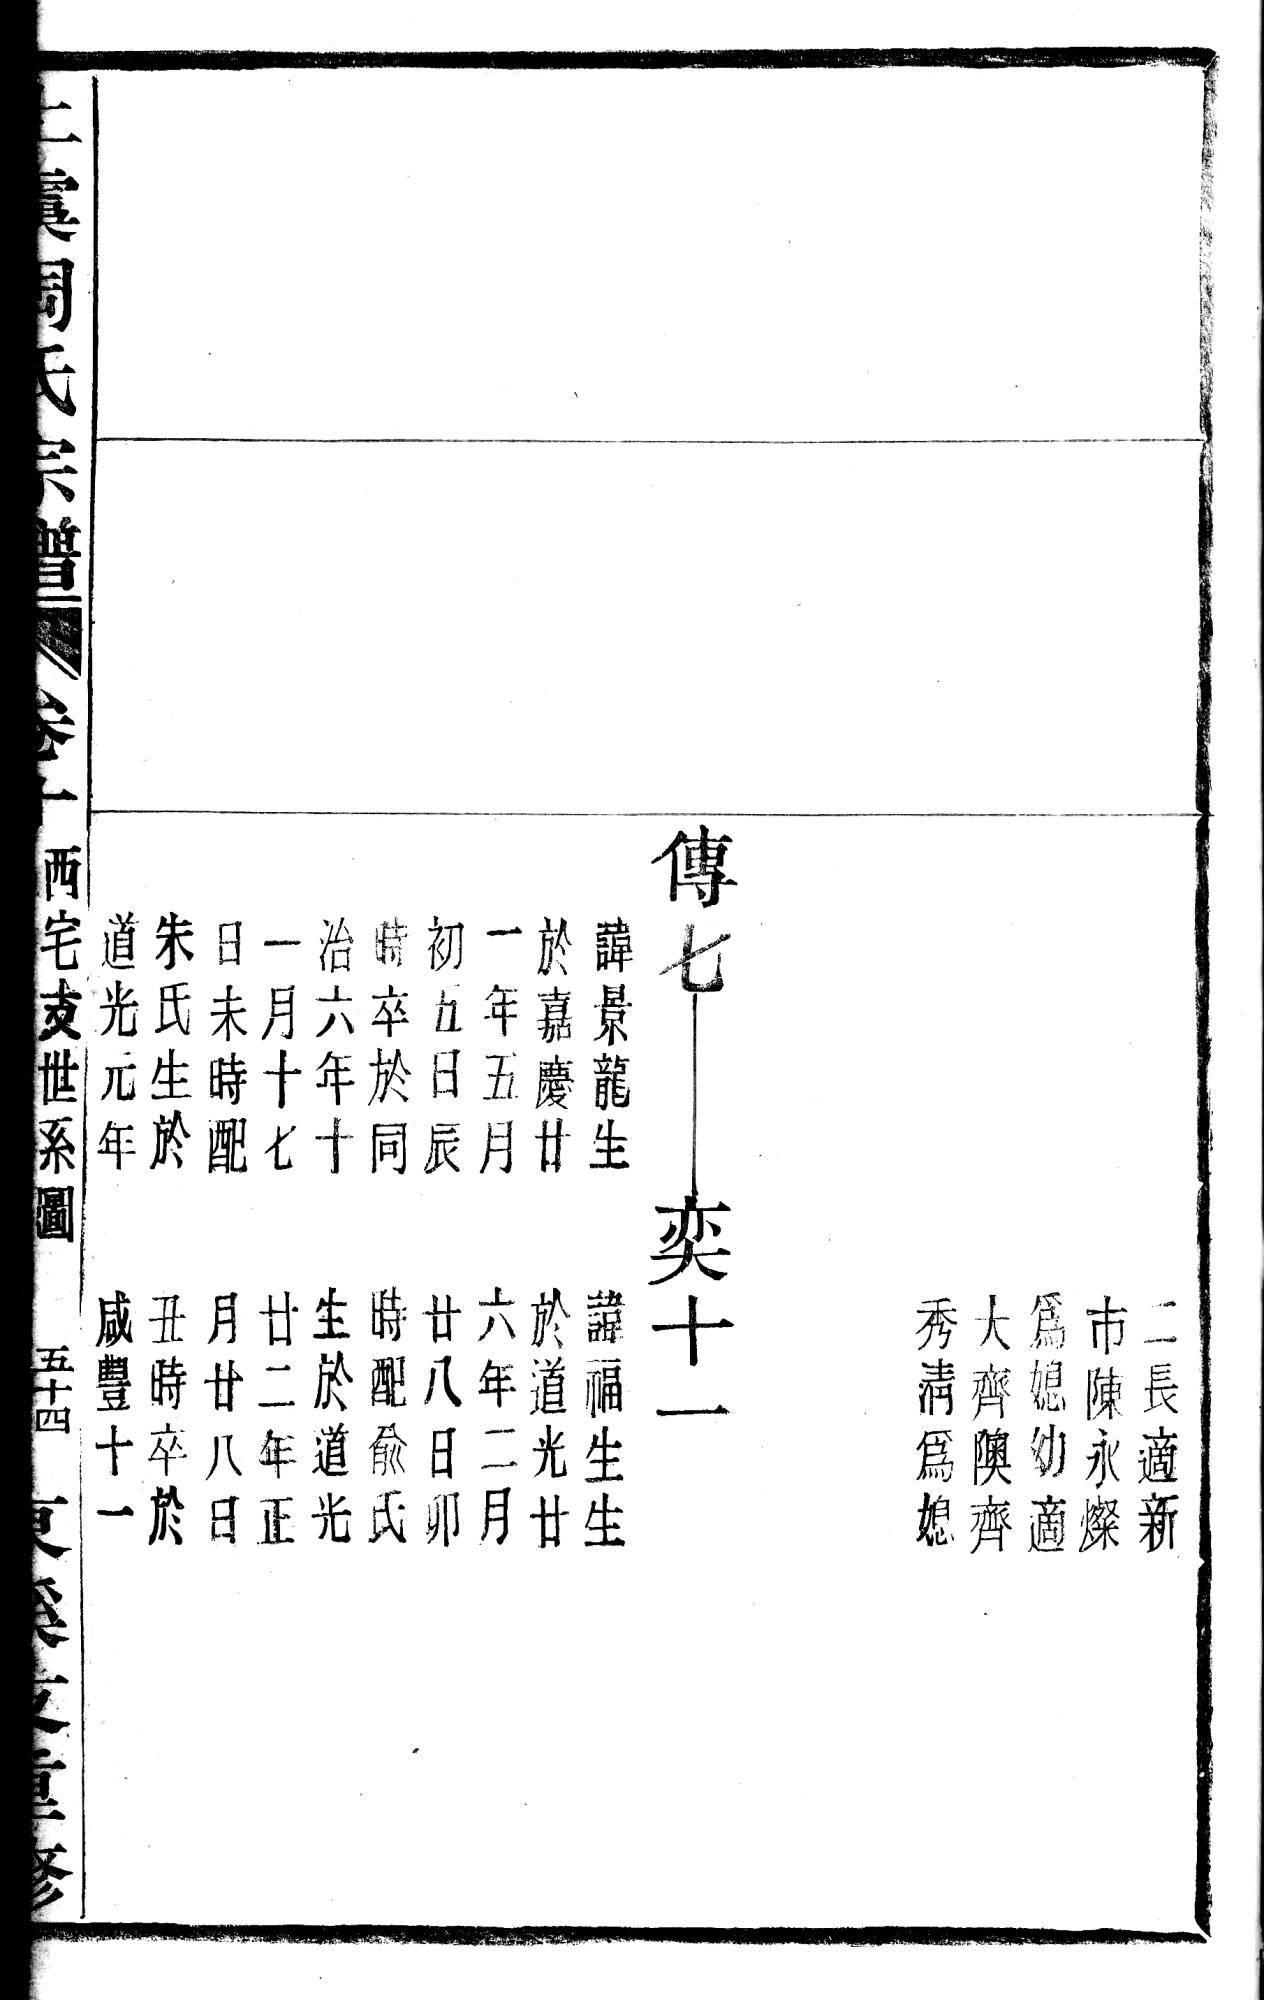 二長適新
市陳永燦
爲媳幼適
大齊隩齊
秀淸爲媳
傳七
諱景龍生
於嘉慶廿
一年五月
初五日辰
時卒於同
治六年十
一月十七
日未時配
朱氏生於
道光元年
奕十一
諱福生生
於道光廿
六年二月
廿八日卯
時配俞氏
生於道光
廿二年正
月廿八日
丑時卒於
咸豐十一
虞周氏宗譜 卷十 西宅支世系圖 五十四
重修